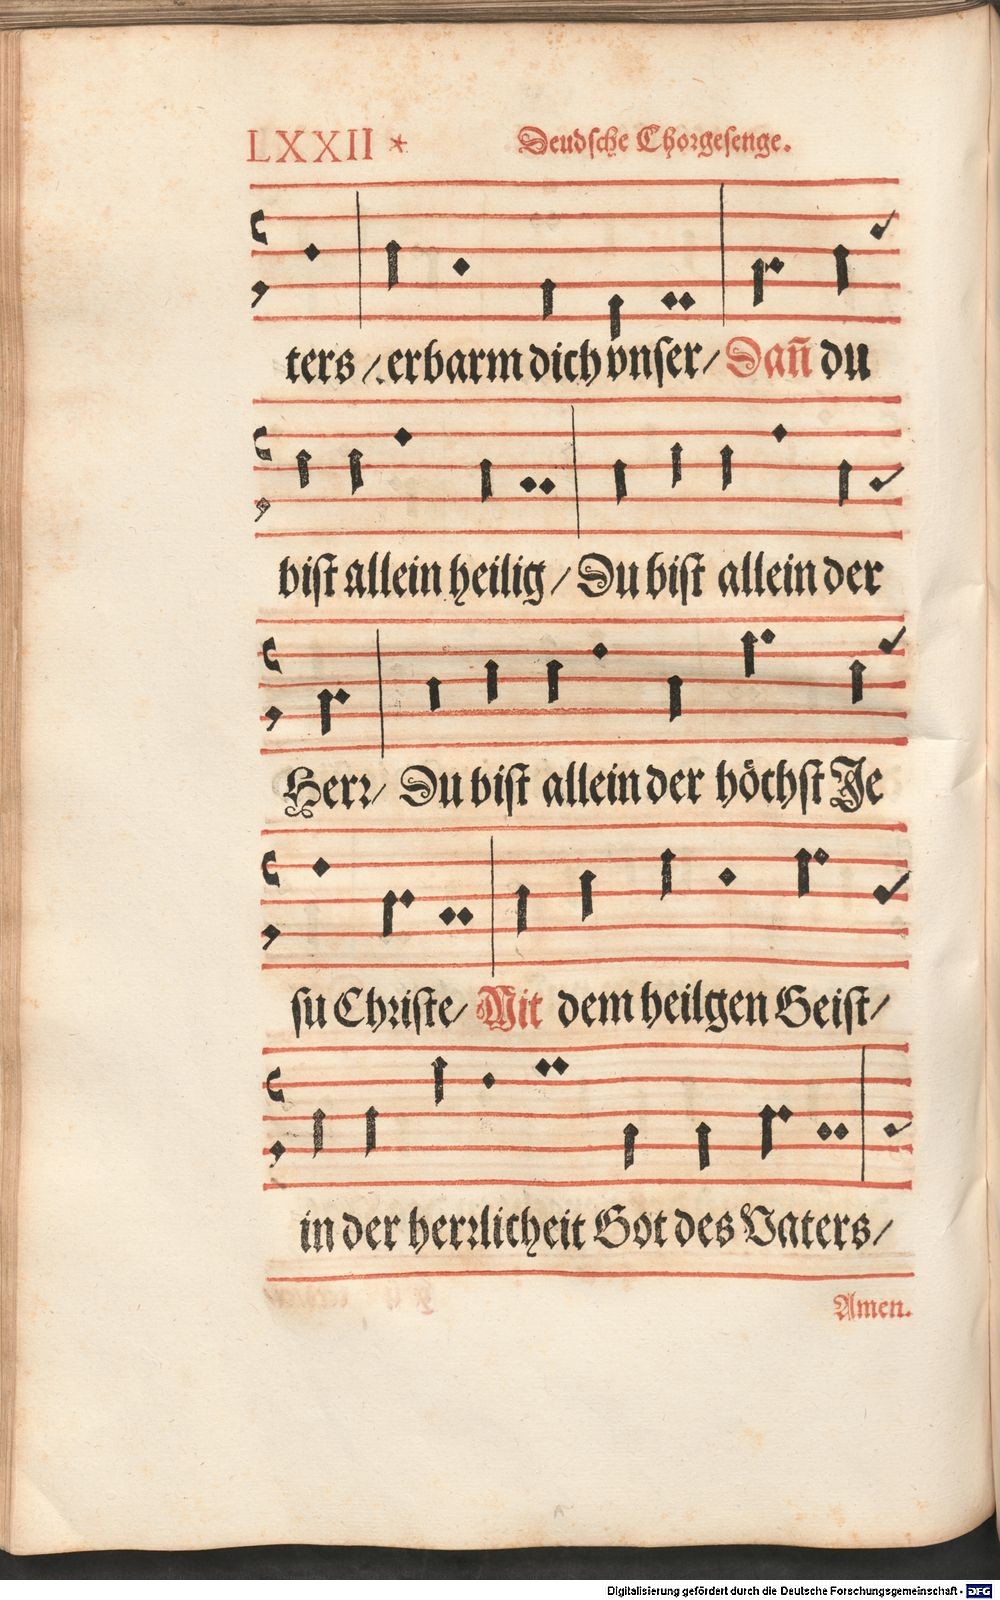 LXXII * Deudsche Chorgesenge.
ters / erbarm dich vnser / Dañ du
bist allein heilig / Du bist allein der
Herr / Du bist allein der höchst Je
su Christe / Mit dem heilgen Geist /
in der herrlicheit Got des Vaters /
Amen.
Digitalisierung gefördert durch die Deutsche Forschungsgemeinschaft - DFG